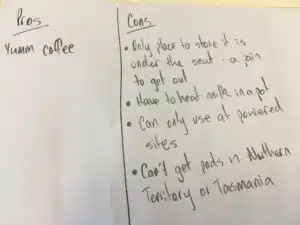 Pros
Yumm coffee
Cons
• Only place to store it is
under the seat - a pain
to get out
• Have to heat milk in a pot
• Can only use at powered
sites
• Can't get pods in Northern
Territory or Tasmania